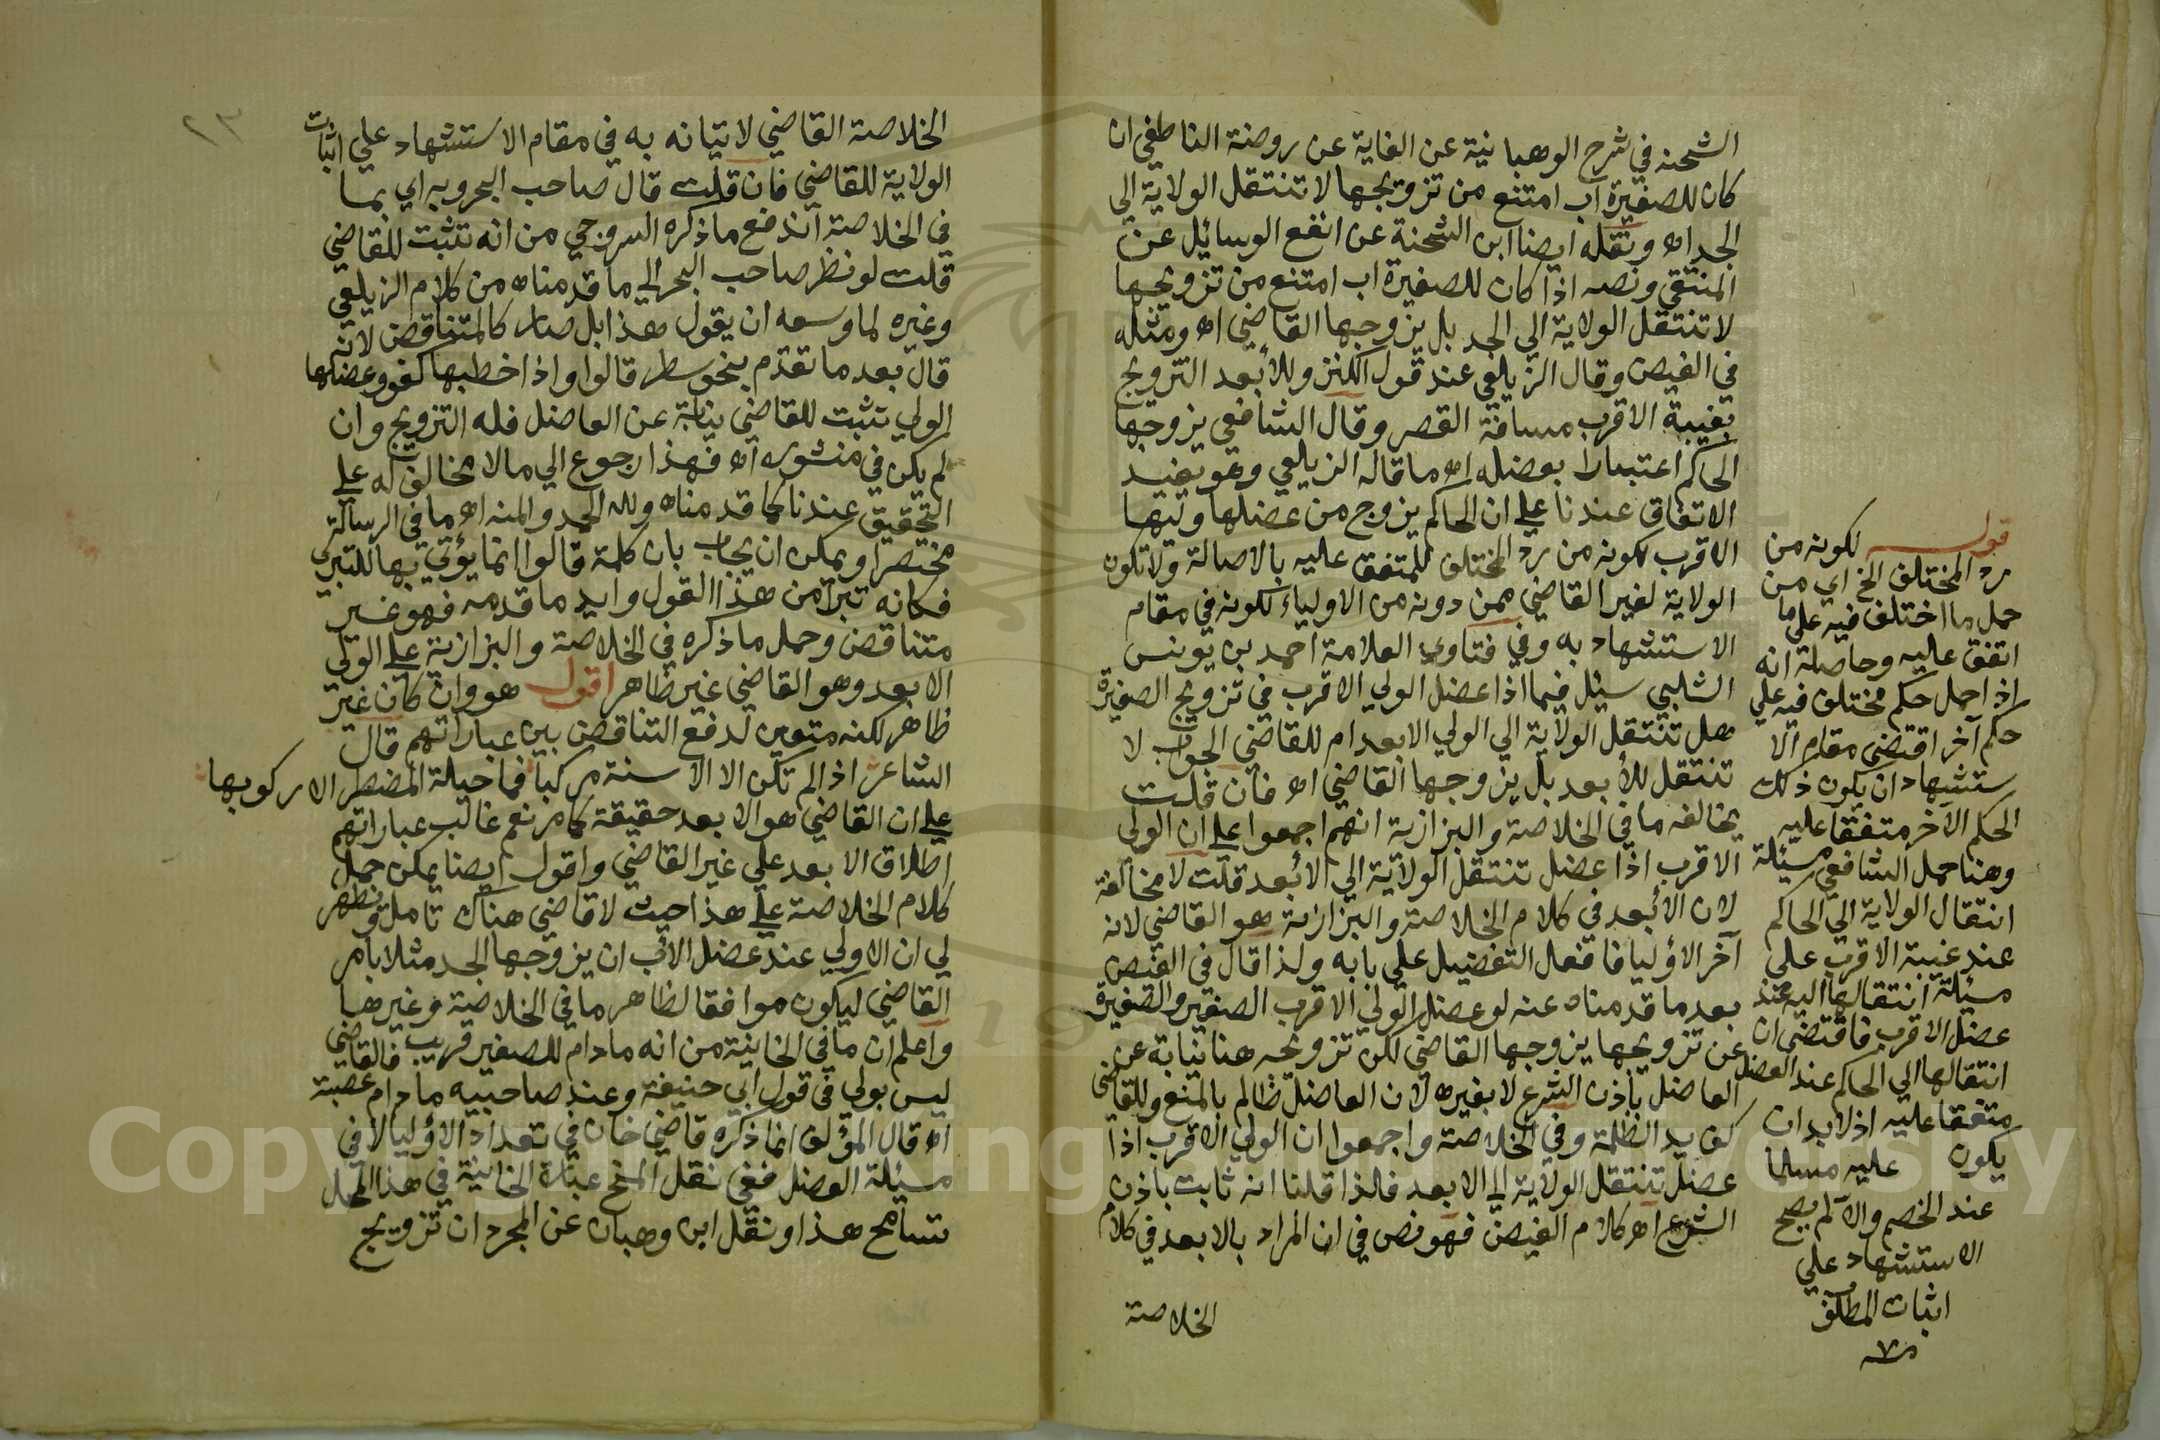 الشحنه في شرح الوهبانية عن الغاية عن روضة الناطفي ان
كان للصغيرة اب امتنع من تزويجها لا تنتقل الولاية الي
الجد اه ونقله ايضا ابن الشحنة عن انفع الوسائل عن
المنتقي ونصه اذا كان للصغيرة اب امتنع من تزويجها
لا تنتقل الولاية الي الجد بل يزوجها القاضي اه ومثله
في الفيض وقال الزيلعي عند قول الكنز وللأبعد التزويج
بغيبة الاقرب مسافة القصر وقال الشافعي يزوجها
الحاكم اعتبارا بعضله اه ما قاله الزيلعي وهو يفيد
الاتفاق عندنا علي ان الحاكم يزوج من عضلها وليها
الاقرب لكونه من رد المختلف للمتفق عليه بالاصالة ولا تكون
الولاية لغير القاضي ممن دونه من الاولياء لكونه في مقام
الاستشهاد به وفي فتاوي العلامة احمد بن يونس
الشلبي سئل فيما اذا عضل الولي الاقرب في تزويج الصغيرة
هل تنتقل الولاية الي الولي الابعد ام للقاضي الجواب لا
تنتقل للأبعد بل يزوجها القاضي اه فان قلت
يخالفه ما في الخلاصة والبزازية انهم اجمعوا علي ان الولي
الاقرب اذا عضل تنتقل الولاية الي الأبعد قلت لا مخالفة
لان الأبعد في كلام الخلاصة والبزازية هو القاضي لانه
آخر الأوليا فافعل التفضيل علي بابه ولذا قال في الفيض
بعد ما قدمناه عنه لو عضل الولي الاقرب الصغير والصغيرة
عن تزويجها يزوجها القاضي لكن تزويجه هنا نيابة عن
العاضل باذن الشرع لا بغيره لان العاضل ظالم بالمنع وللقاضي
كف يد الظلمة وفي الخلاصة واجمعوا ان الولي الاقرب اذا
عضل تنتقل الولاية الي الابعد فالذا قلنا انه ثابت باذن
الشرع اه كلام الفيض فهو نص في ان المراد بالابعد في كلام
الخلاصة
قوله لكونه من
رد المختلف الخ اي من
حمل ما اختلف فيه علي ما
اتفق عليه وحاصله انه
اذا حمل حكم مختلف فيه علي
حكم آخر اقتضي مقام الا
ستشهاد ان يكون ذلك
الحكم الآخر متفقا عليه
وهنا حمل الشافعي مسئلة
انتقال الولاية الي الحاكم
عند غيبة الاقرب علي
مسئلة انتقالها اليه عند
عضل الاقرب فاقتضي ان
انتقالها الي الحاكم عند العضل
متفقا عليه اذ لا بد ان
يكون عليه مسلما
عند الخصم والا لم يصح
الاستشهاد علي
اثبات المطلق
منه
٢٣
الخلاصة القاضي لاتيانه به في مقام الاستشهاد علي اثبات
الولاية للقاضي فان قلت قال صاحب البحر وبه اي بما
في الخلاصة اندفع ما ذكره السروجي من انه تثبت للقاضي
قلت لو نظر صاحب البحر الي ما قدمناه من كلام الزيلعي
وغيره لما وسعه ان يقول هذا بل صار كالمتناقض لانه
قال بعد ما تقدم بنحو سطر قالوا واذا خطبها كفو وعضلها
الولي تثبت للقاضي نيابة عن العاضل فله التزويج وان
لم يكن في منشوره اه فهذا رجوع الي ما لا يخالف له علي
التحقيق عندنا كما قدمناه ولله الحمد والمنه اه ما في الرسالة
مختصرا ويمكن ان يجاب بان كلمة قالوا انما يؤتي بها للتبري
فكانه تبرآ من هذا القول وايد ما قدمه فهو غير
متناقض وحمل ما ذكره في الخلاصة والبزازية علي الولي
الابعد وهو القاضي غير ظاهر اقول هو وان كان غير
ظاهر لكنه متعين لدفع التناقض بين عباراتهم قال
الشاعر اذا لم تكن الا الاسنة مركبا فما حيلة المضطر الا ركوبها
علي ان القاضي هو الابعد حقيقة كما مر نعم غالب عباراتهم
اطلاق الابعد علي غير القاضي واقول ايضا يمكن حمل
كلام الخلاصة علي هذا حيث لا قاضي هناك تامل ونظهر
لي ان الاولي عند عضل الأب ان يزوجها الجد مثلا بامر
القاضي ليكون موافقا لظاهر ما في الخلاصة وغيرها
واعلم ان ما في الخانية من انه ما دام للصغير قريب فالقاضي
ليس بولي في قول ابي حنيفة وعند صاحبيه ما دام عصبة
اه قال المؤلف انما ذكره قاضي خان في تعداد الأوليا لا في
مسئلة العضل ففي نقل المنح عبارة الخانية في هذا المحل
تسامح هذا ونقل ابن وهبان عن المجرد ان تزويج
Copyright © King Saud University